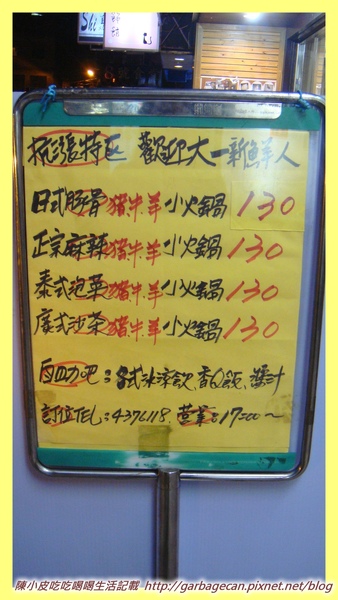 抗漲特区 歡迎大一新鮮人
日式豚骨豬.牛.羊小火鍋130
正宗麻辣豬.牛.羊小火鍋130
泰式泡菜豬.牛.羊小火鍋130
廣式沙茶豬.牛.羊小火鍋130
自助吧:各式冰涼飲、香Q飯、醬汁
訂位TEL:4376118.營業:17:00~
陳小皮吃吃喝喝生活記載 http://garbagecan.pixnet.net/blog